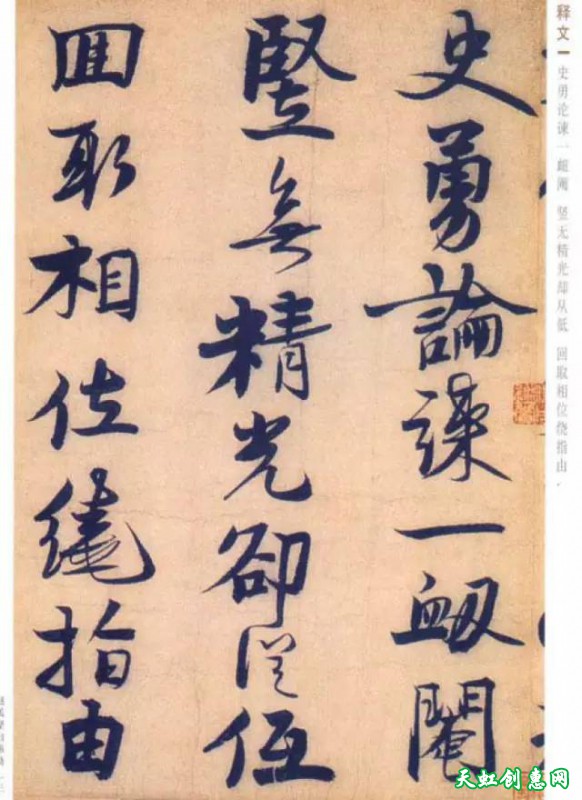 释文一 史勇论谏一衄阉 竖无精光却从低 回取相位绕指由
史勇論諫一衄閹
豎無精光卻從低
回取相位繞指由
天虹创惠网